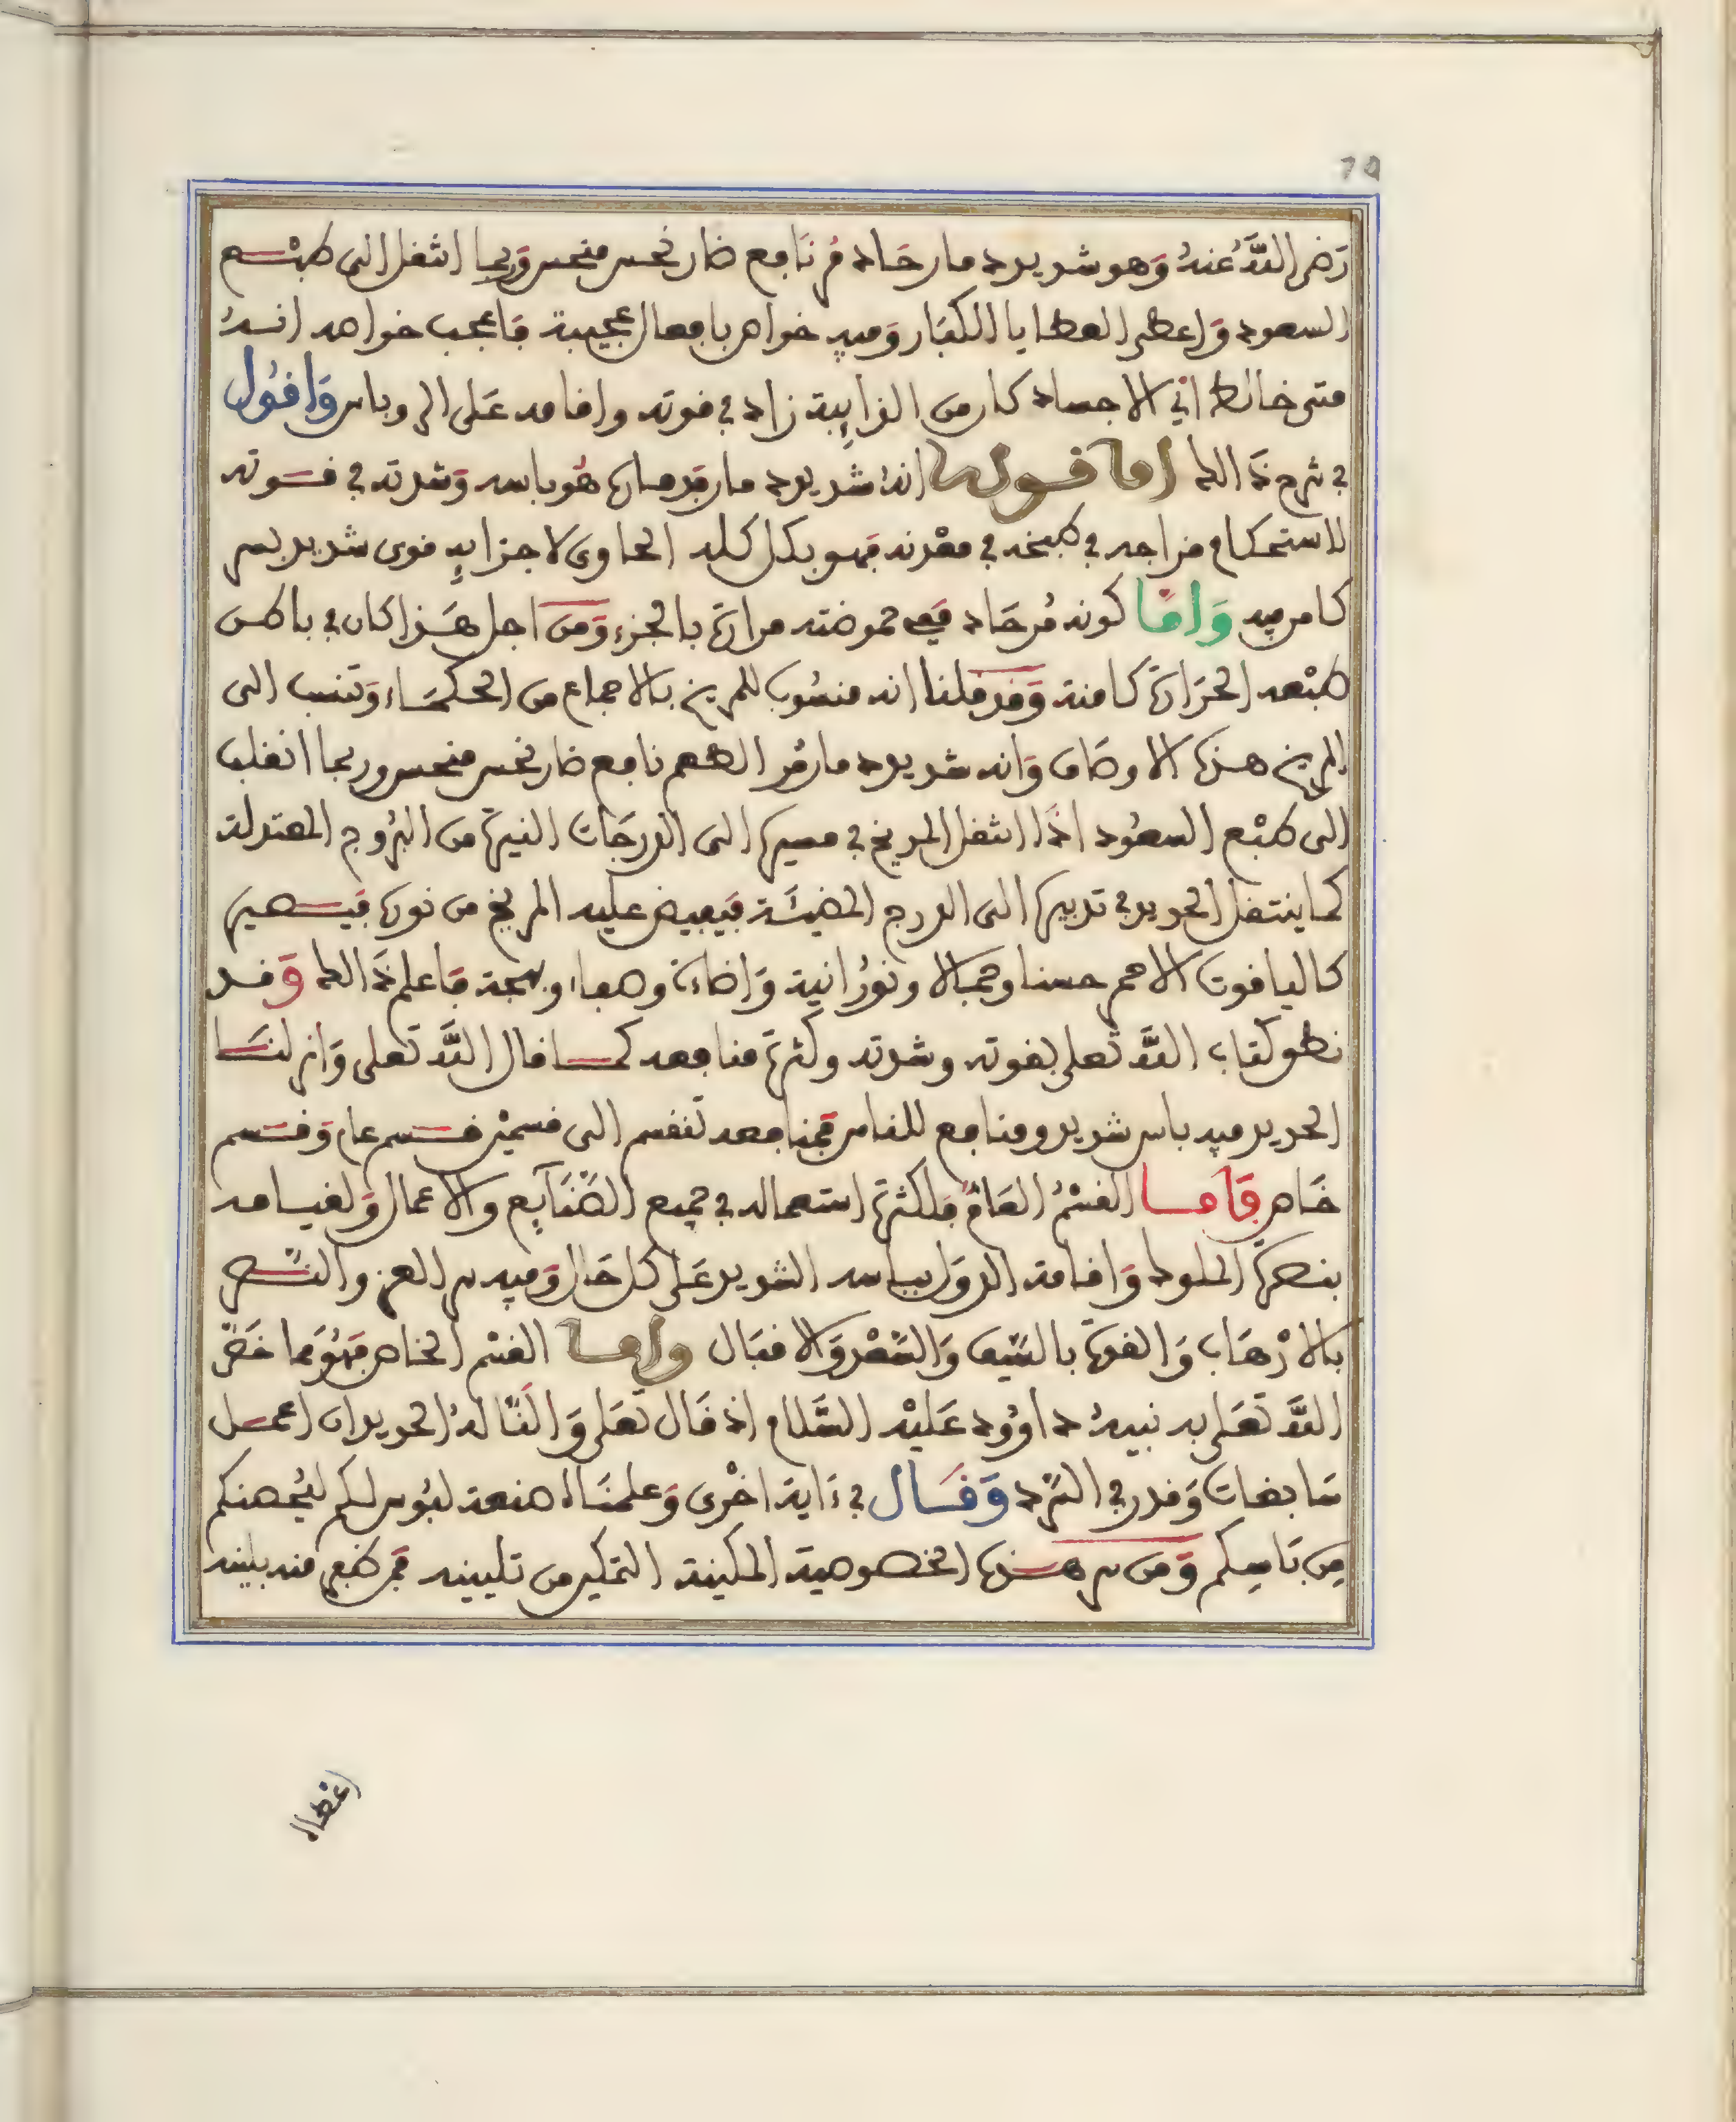 70
رَضِىَ اللَّهُ عَنْهُ وَهو شديد حار حَاد مُر نَافع ضار نحس منحس وَربما انتقل الى طبْع
السعود وَاعطى العطايا الكبَار وَفيه خواص بافعال عجيبة فَاعجب خواصه انهُ
متى خالط اي الاجساد كان من الذايِبة زاد في قوته واقامه عَلى الروباس وَاقُول
في شرح ذَالك اما قوله انهُ شديد حار فَحرارة هُو باسه وَشدته في قوته
لاستحكام مزاجه في طبخه في معْدنه فهو بكل كله الحاوى لاجزايِه قوى شديد بسر
كامن فيه وَامَّا كونه مُر حَاد فَفِى حموضته مرارة بالجزءِ وَمن اجل هَذا كان في باطن
طبْعه الحَرَارَة كامنة وَقد قلنا انه منسُوب للمريخ بالاجماع من الحكمَاء وَتنسب الى
المريخ هذه الاوصَاف وَانه شديد حار مُر الطعم نافع ضار نحس منحس وربما انقلب
الى طبْع السعُود اذَا انتقل المريخ في مسيره الى الدرجَات النيرة من البُرُوج المعتدلة
كما ينتقل الحديد في تدبيره الى الدرج المضيئَة فيَفيض عليه المريخ من نوره فَيصير
كالياقوت الاحمر حسنا وجمالا ونوُرانية وَاضاءة وصفاء وبهجة فَاعلم ذَالك وَقد
نطق كتاب اللَّه تَعلى بقوته وشدته وكثرة منافعه كما قال اللَّه تَعلى وَانزلنَا
الحديد فيه باس شديد ومنافع للناس فَمنافعه تنقسم الى قسميْن قسم عام وَقسم
خَاص فَاما القسْمُ العَامُّ فَلكثرة استعماله في جميع الصَّنَايِع والاعمال وَلقيامه
بنصرَة الملوك وَاقامة الدوَل بباسه الشديد عَلى كل حَال وَفيه سر العز والنَّصر
بالارْهَاب وَالقوة بالسَّيف وَالسَّعْد وَالاقبَال واما القسْم الخاص فَهُوَ مما خَصَّ
اللَّه تعَلى به نبيهُ داوُود عَليْه السَّلام اذ قَال تعَلى وَالَنَّا لهُ الحديد ان اعمل
سَابغات وَقدر في السَّرْد وَقَال في ءَاية اخْرى وَعلمنَاه صنعة لبُوس لكم لتُحصنكم
مِن بَاسِكم وَمن سر هذه الخصوصية المكينة التمكين من تليينه فمن طبع منه بلينه
اغطاا